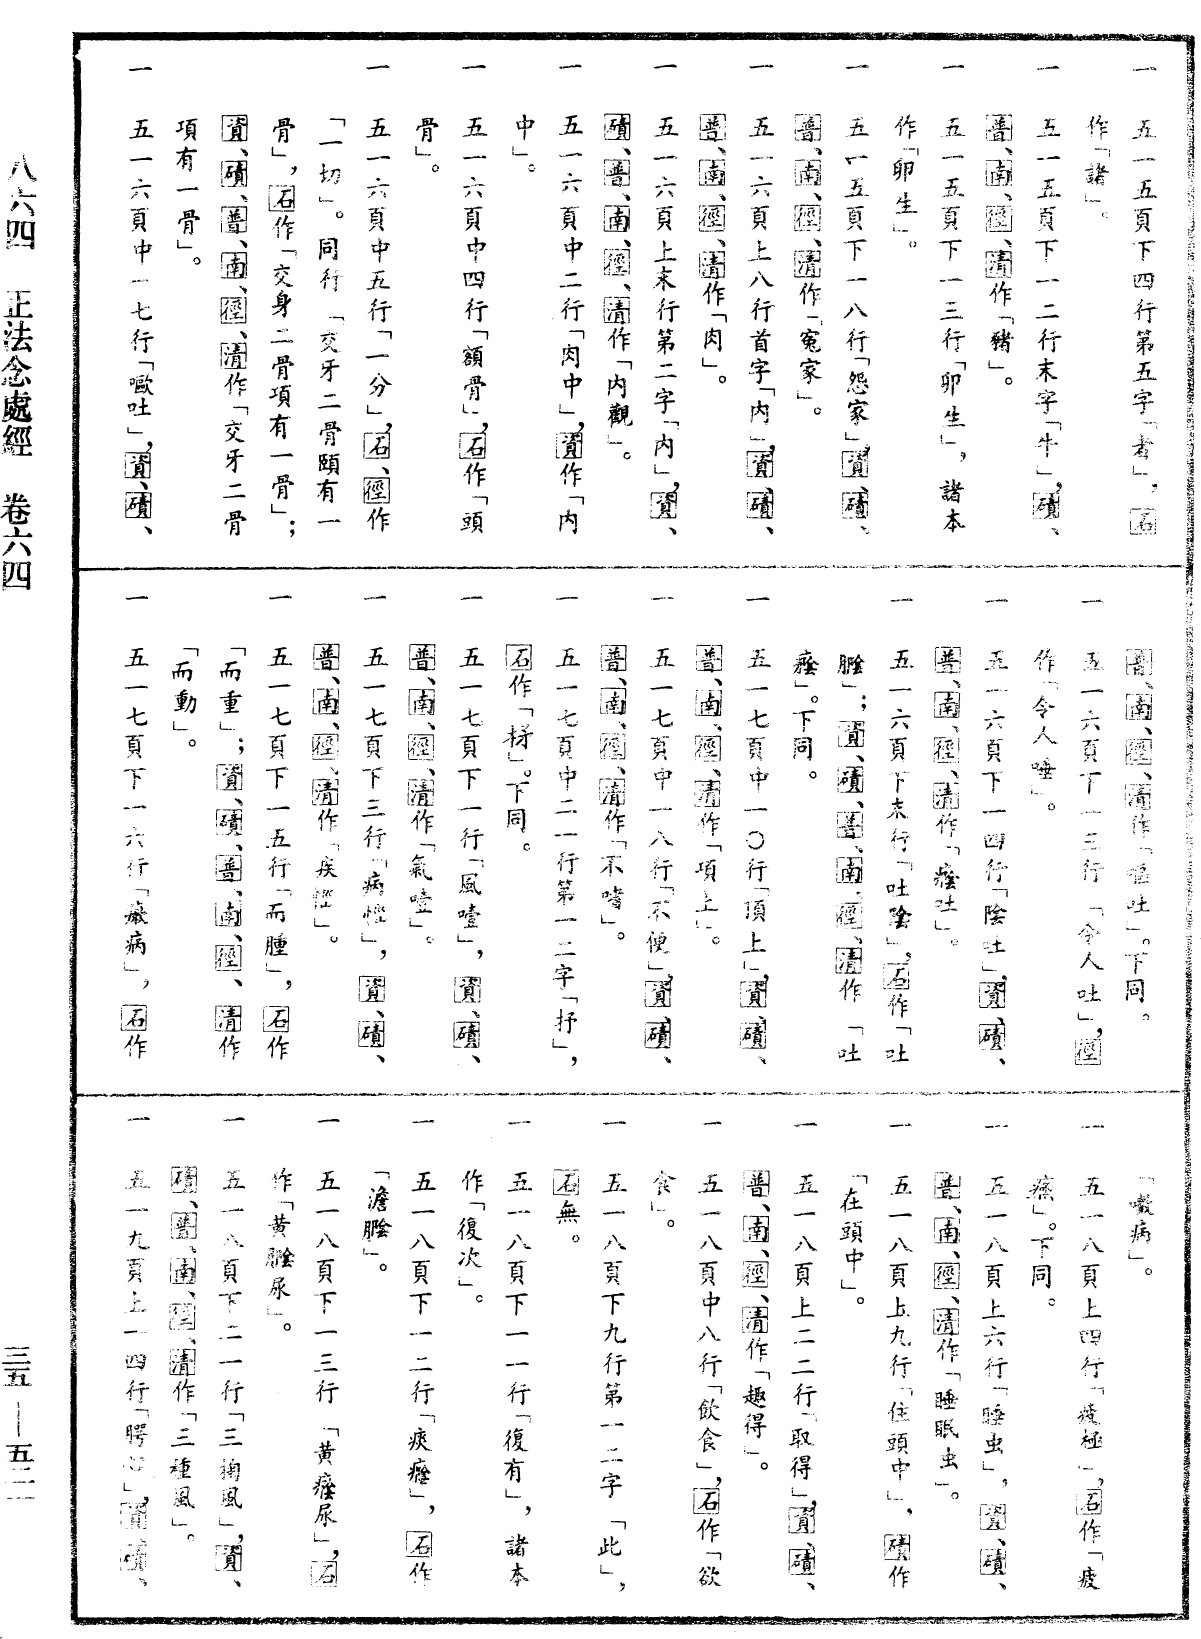 一　五一五頁下四行第五字「者」，石
作「諸」。
一　五一五頁下一二行末字「牛」，磧、
普、南、徑、清作「豬」。
一　五一五頁下一三行「卵生」，諸本
作「卵生」。
一　五一五頁下一八行「怨家」，資、磧、
普、南、徑、清作「冤家」。
一　五一六頁上八行首字「內」，資、磧、
普、南、徑、清作「肉」。
一　五一六頁上末行第二字「內」，資、
磧、普、南、徑、清作「內觀」。
一　五一六頁中二行「肉中」，資作「內
中」。
一　五一六頁中四行「額骨」，石作「頭
骨」。
一　五一六頁中五行「一分」，石、徑作
「一切」。同行「交牙二骨頤有一
骨」，石作「交身二骨項有一骨」；
資、磧、普、南、徑、清作「交牙二骨
項有一骨」。
一　五一六頁中一七行「嘔吐」，資、磧、
普、南、徑、清作「嘔吐」。下同。
一　五一六頁下一三行「令人吐」，徑
作「令人唾」。
一　五一六頁下一四行「陰吐」，資、磧、
普、南、徑、清作「癊吐」。
一　五一六頁下末行「吐陰」，石作「吐
膾」；資、磧、普、南、徑、清作「吐
癊」。下同。
一　五一七頁中一〇行「頂上」，資、磧、
普、南、徑、清作「項上」。
一　五一七頁中一八行「不便」，資、磧、
普、南、徑、清作「不嗜」。
一　五一七頁中二一行第一二字「抒」，
石作「柕」。下同。
一　五一七頁下一行「風噎」，資、磧、
普、南、徑、清作「氣噎」。
一　五一七頁下三行「病怪」，資、磧、
普、南、徑、清作「疾」。
一　五一七頁下一五行「而腫」，石作
「而重」；資、磧、普、南、徑、清作
「而動」。
一　五一七頁下一六行「癥病」，石作
「嗽病」。
一　五一八頁上四行「疲極」，石作「疲
癢」。下同。
一　五一八頁上六行「睡虫」，資、磧、
普、南、徑、清作「睡眠虫」。
一　五一八頁上九行「住頭中」，磧作
「在頭中」。
一　五一八頁上二二行「取得」，資、磧、
普、南、徑、清作「趣得」。
一　五一八頁中八行「飲食」，石作「欲
食」。
一　五一八頁下九行第一二字「此」，
石無。
一　五一八頁下一一行「復有」，諸本
作「復次」。
一　五一八頁下一二行「痰癊」，石作
「澹膾」。
一　五一八頁下一三行「黃癊尿」，石
作「黃膾尿」。
一　五一八頁下二一行「三掬風」，資、
磧、普、南、徑、清作「三種風」。
一　五一九頁上一四行「腭」，資、磧、
八六四　正法念處經　卷六四
三五—五二一